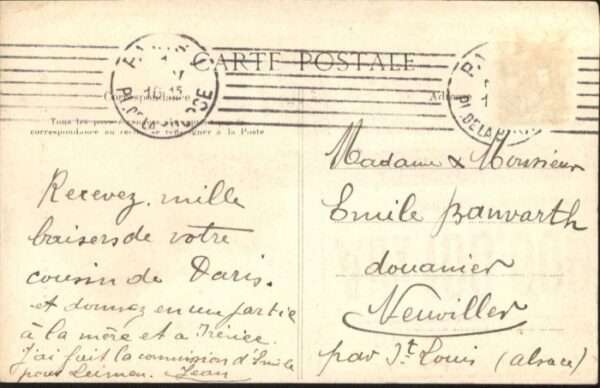 CARTE POSTALE
PARIS
16 15
PL. DE LA BOURSE
Correspondance
Adresse
Tous les pays étrangers
correspondance au recto se renseigner à la Poste
Recevez mille
baisers de votre
cousin de Paris.
et donnez en un partie
à la mère et a Irénée.
J'ai fait la commission d'Emile
pour Leimen. Jean
Madame & Monsieur
Emile Banwarth
douanier
Neuwiller
par St Louis (Alsace)